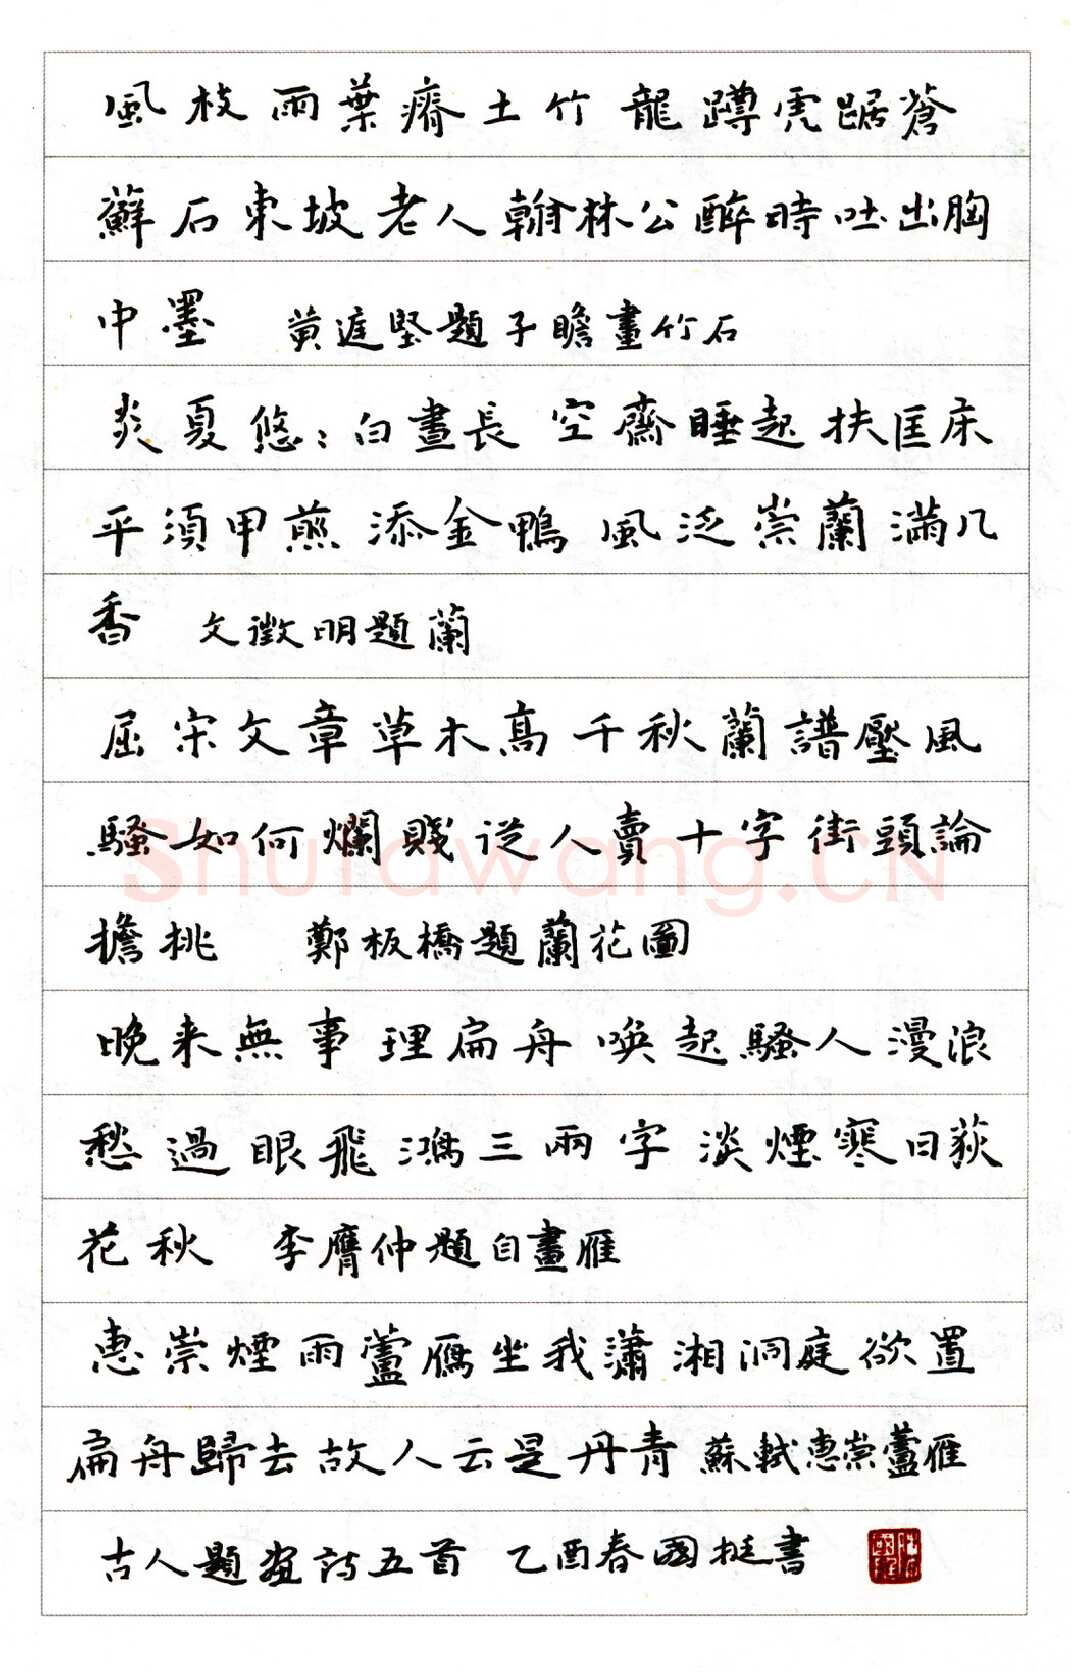 風枝雨葉瘠土竹龍蹲虎踞蒼
蘚石東坡老人翰林公醉時吐出胸
中墨 黃庭堅題子瞻畫竹石
炎夏悠:白晝長空齋睡起扶匡床
平須甲煎添金鴨風泛崇蘭滿几
香 文徵明題蘭
屈宋文章草木高千秋蘭譜壓風
騷如何爛賤從人賣十字街頭論
擔挑 鄭板橋題蘭花圖
晚来無事理扁舟喚起騷人漫浪
愁過眼飛鴻三兩字淡煙寒日荻
花秋 李膺仲題自畫雁
惠崇煙雨蘆鴈坐我瀟湘洞庭欲置
扁舟歸去故人云是丹青 蘇軾惠崇蘆雁
古人題畫诗五首 乙酉春國挺書
Shufawang.CN